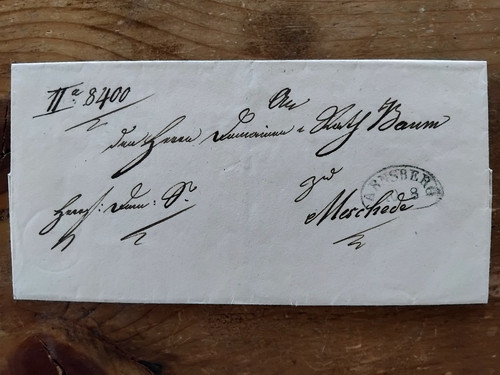 IIa. 8400
An
den Herrn Domainen-Rath Baum
zu
Meschede
Herrsch: Dom: S.
ARNSBERG
8